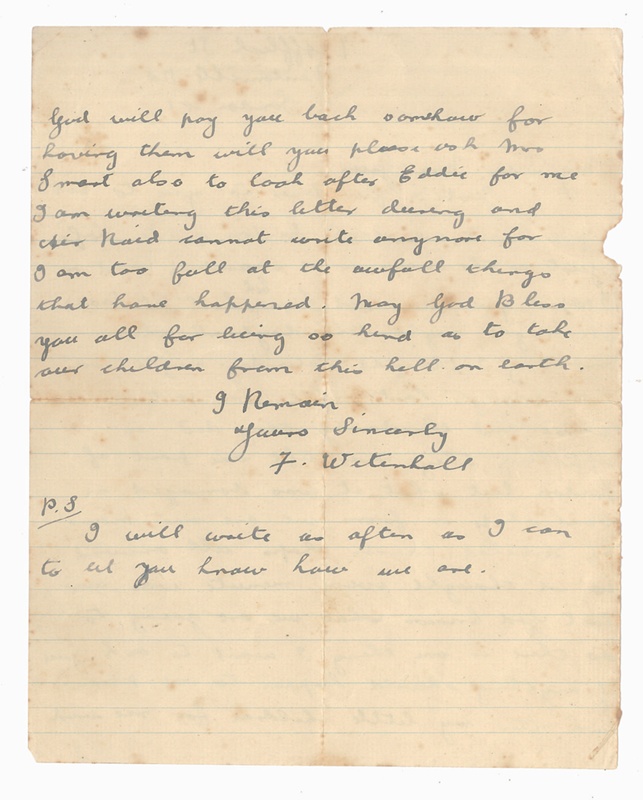 God will pay you back somehow for
having them will you please ask Mrs
Smart also to look after Eddie for me
I am writeng this letter dureing and
Air Raid cannot write anymore for
I am too full at the awfull things
that have happened. May God Bless
you all for being so kind as to take
our children from this hell on earth.
I Remain
Yours Sincerly
F. Witenhall
P.S
I will write as often as I can
to let you know how we are.